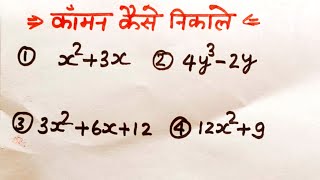 ⇒ कॉमन कैसे निकाले ⇐
① x²+3x ② 4y³-2y
③ 3x²+6x+12 ④ 12x²+9